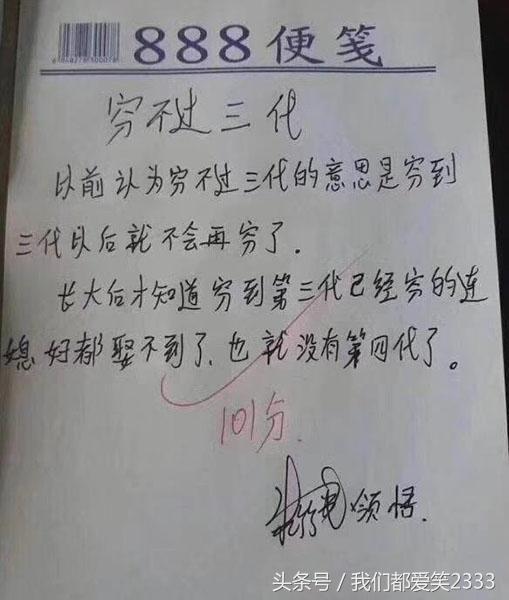 888便笺
穷不过三代
以前认为穷不过三代的意思是穷到
三代以后就不会再穷了.
长大后才知道穷到第三代已经穷的连
媳妇都娶不到了,也就没有第四代了。
101分.
领悟.
头条号/我们都爱笑2333